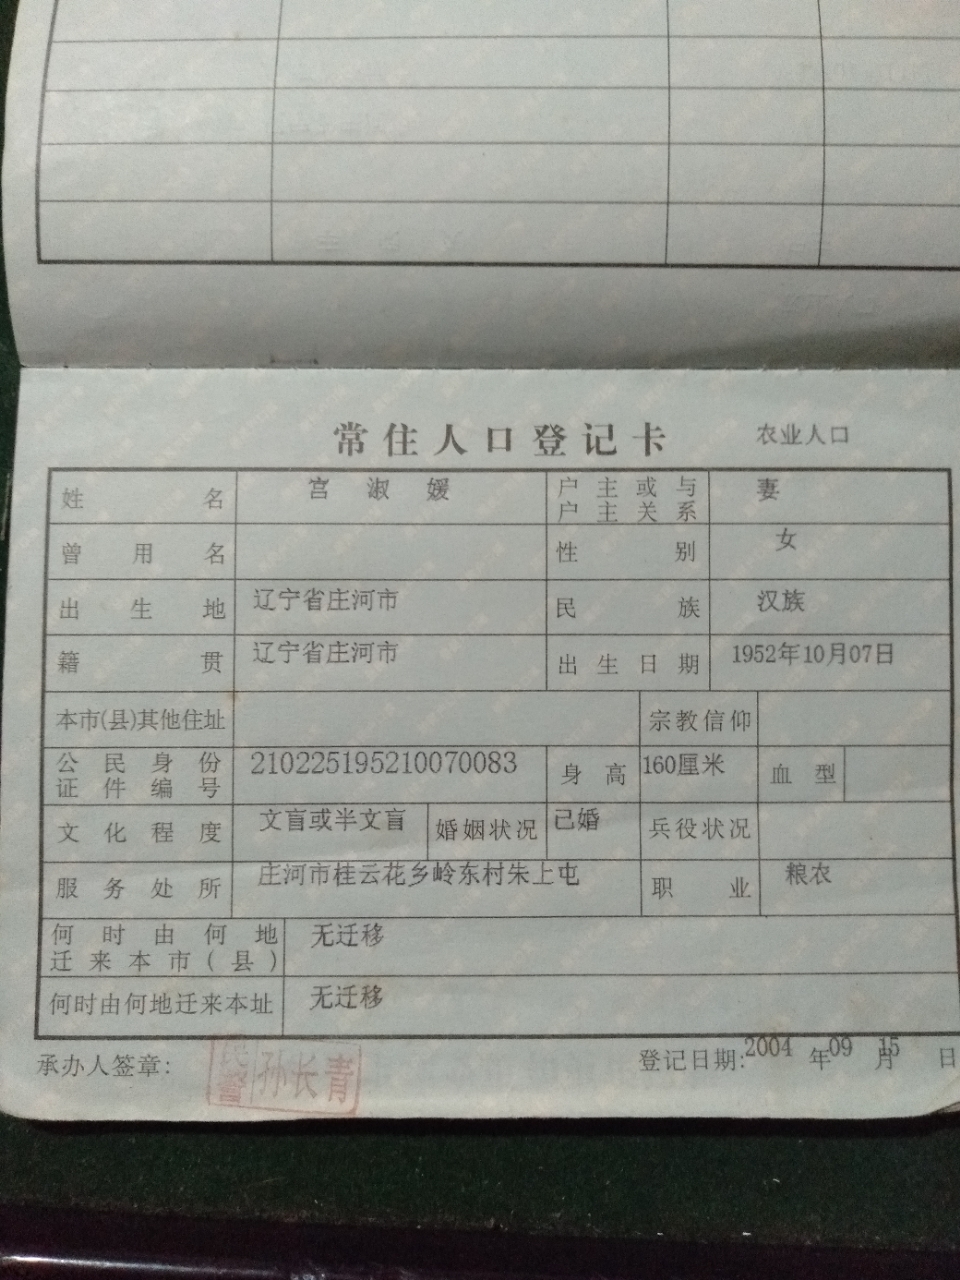 常住人口登记卡 农业人口
姓名 宫淑媛 户主或与户主关系 妻
曾用名 性别 女
出生地 辽宁省庄河市 民族 汉族
籍贯 辽宁省庄河市 出生日期 1952年10月07日
本市(县)其他住址 宗教信仰
公民身份证件编号 210225195210070083 身高 160厘米 血型
文化程度 文盲或半文盲 婚姻状况 已婚 兵役状况
服务处所 庄河市桂云花乡岭东村朱上屯 职业 粮农
何时由何地迁来本市(县) 无迁移
何时由何地迁来本址 无迁移
承办人签章: 民警 孙长青 登记日期: 2004 年 09 月 15 日